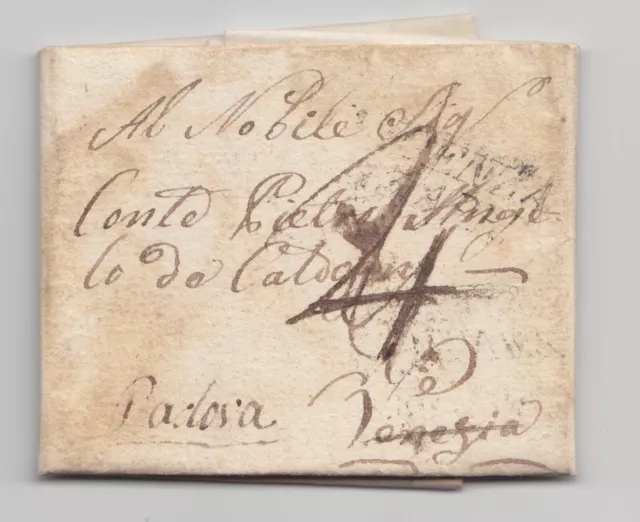 Al Nobile Sig.r
Conte Pietro Ange=
lo de Caldogno
4
Padova Venezia